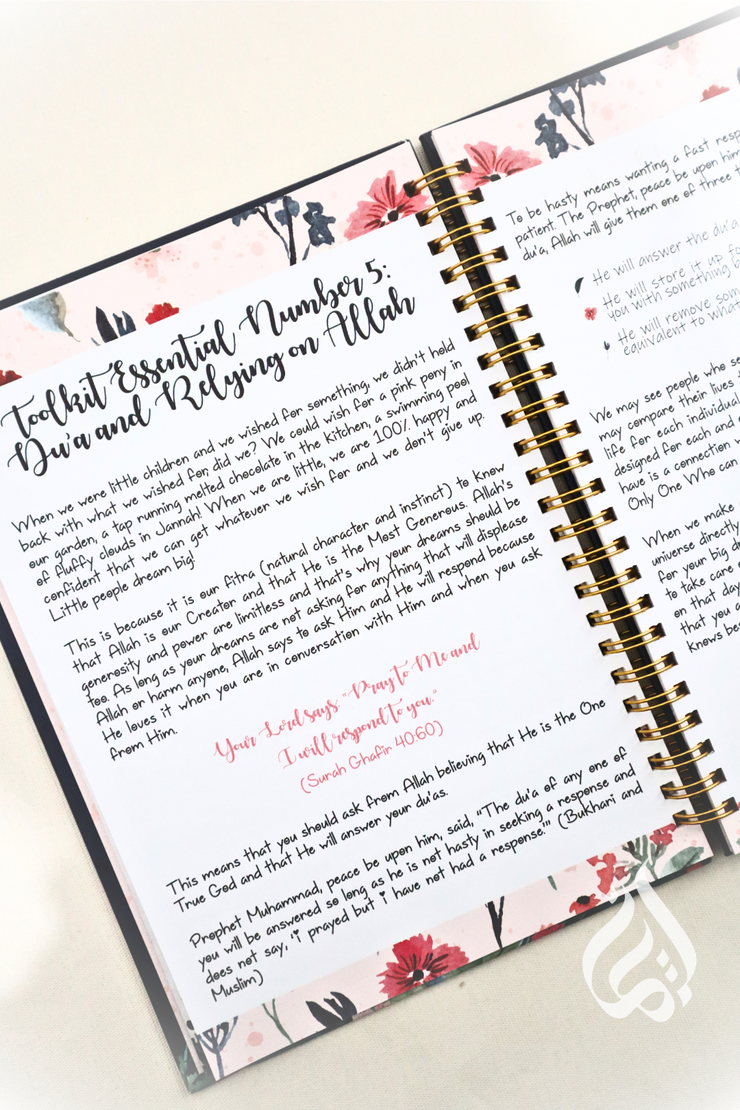 Toolkit Essential Number 5:
Du'a and Relying on Allah
When we were little children and we wished for something, we didn't hold
back with what we wished for, did we? We could wish for a pink pony in
our garden, a tap running melted chocolate in the kitchen, a swimming pool
of fluffy clouds in Jannah! When we are little, we are 100% happy and
confident that we can get whatever we wish for and we don't give up.
Little people dream big!
This is because it is our fitra (natural character and instinct) to know
that Allah is our Creator and that He is the Most Generous. Allah's
generosity and power are limitless and that's why your dreams should be
too. As long as your dreams are not asking for anything that will displease
Allah or harm anyone, Allah says to ask Him and He will respond because
He loves it when you are in conversation with Him and when you ask
from Him.
Your Lord says: "Pray to Me and
I will respond to you."
(Surah Ghafir 40:60)
This means that you should ask from Allah believing that He is the One
True God and that He will answer your du'as.
Prophet Muhammad, peace be upon him, said, "The du'a of any one of
you will be answered so long as he is not hasty in seeking a response and
does not say, 'i prayed but i have not had a response." (Bukhari and
Muslim)
To be hasty means wanting a fast resp
patient. The Prophet, peace be upon him
du'a, Allah will give them one of three t
He will answer the du'a
He will store it up fo
you with something b
He will remove som
equivalent to what
We may see people who se
may compare their lives
life for each individual
designed for each and
have is a connection w
Only One Who can
When we make
universe directly
for your big dr
to take care
on that day
that you a
knows bes